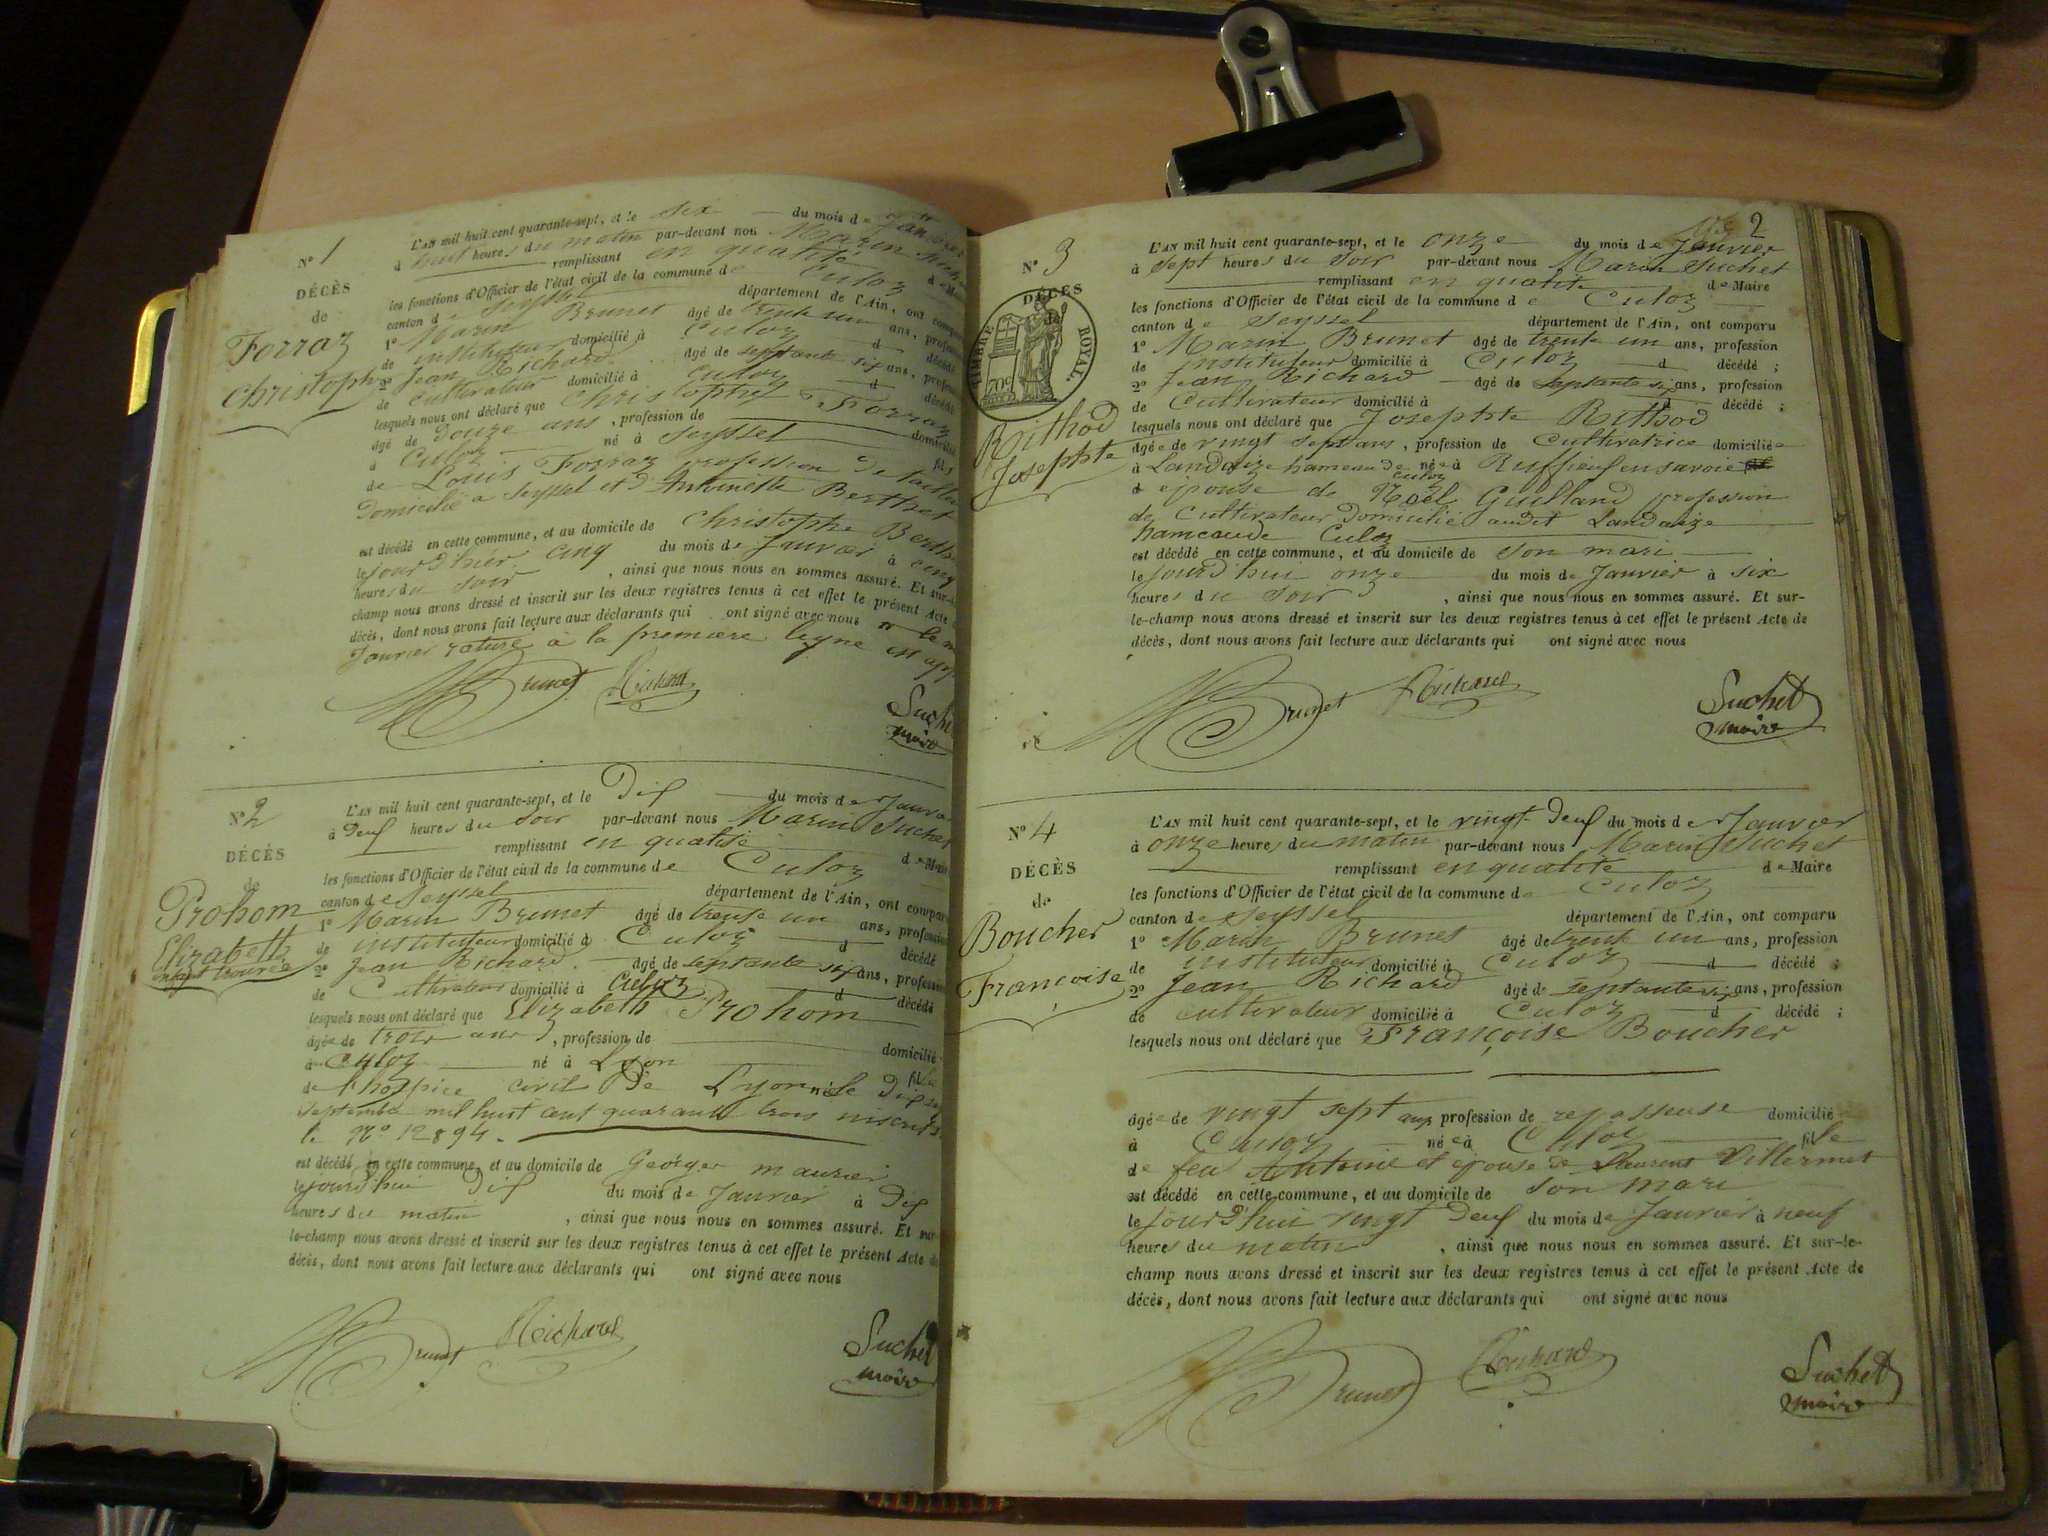 N° 1
DÉCÈS
de
Forraz
Christophe
L'AN mil huit cent quarante-sept, et le six du mois de Janvier
à huit heures du matin par-devant nous Marin Suchet
remplissant en qualité de Maire
les fonctions d'Officier de l'état civil de la commune de Culoz
canton de Seyssel département de l'Ain, ont comparu
1° Marin Brunet agé de trente un ans, profession
de instituteur domicilié à Culoz d décédé
2° Jean Richard agé de septante six ans, profession
de Cultivateur domicilié à Culoz d décédé
lesquels nous ont déclaré que Christophe Forraz
agé de Douze ans, profession de domicilié
à Culoz né à Seyssel fils
de Louis Forraz profession de
Domicilié a Seyssel et d'Antoinette Berthet
est décédé en cette commune, et au domicile de Christophe
le jour d'hier cinq du mois de Janvier à cinq
heures du soir, ainsi que nous nous en sommes assuré. Et sur-le-
champ nous avons dressé et inscrit sur les deux registres tenus à cet effet le présent Acte
décès, dont nous avons fait lecture aux déclarants qui ont signé avec nous le
Janvier raturé à la premiere ligne est
Brunet Richard Suchet
maire
N° 2
DÉCÈS
de
Prohom
Elizabeth
enfant trouvée
L'AN mil huit cent quarante-sept, et le Dix du mois de Janvier
à Deux heures du soir par-devant nous Marin Suchet
remplissant en qualité de Maire
les fonctions d'Officier de l'état civil de la commune de Culoz
canton de Seyssel département de l'Ain, ont comparu
1° Marin Brunet agé de trente un ans, profession
de instituteur domicilié à Culoz d décédé
2° Jean Richard agé de septante six ans, profession
de Cultivateur domicilié à Culoz d décédé
lesquels nous ont déclaré que Elizabeth Prohom
agée de trois ans, profession de domicilié
à Culoz né à Lyon fille
de l'hospice civil De Lyon née le
septembre mil huit cent quarante trois inscrite
le N° 12894.
est décédé en cette commune, et au domicile de George maurier
le jourd'hui Dix du mois de Janvier à Dix
heures du matin, ainsi que nous nous en sommes assuré. Et sur-
le-champ nous avons dressé et inscrit sur les deux registres tenus à cet effet le présent Acte de
décès, dont nous avons fait lecture aux déclarants qui ont signé avec nous
Brunet Richard Suchet
maire
2
N° 3
DÉCÈS
de
TIMBRE ROYAL.
70c
Rithod
Josephte
L'AN mil huit cent quarante-sept, et le onze du mois de Janvier
à sept heures du soir par-devant nous Marin Suchet
remplissant en qualité de Maire
les fonctions d'Officier de l'état civil de la commune de Culoz
canton de Seyssel département de l'Ain, ont comparu
1° Marin Brunet agé de trente un ans, profession
de instituteur domicilié à Culoz d décédé ;
2° Jean Richard agé de septante six ans, profession
de Cultivateur domicilié à d décédé ;
lesquels nous ont déclaré que Josephte Rithod
agée de vingt sept ans, profession de Cultivatrice domiciliée
à Landaize hameau de Culoz née à Ruffieux en savoie
d épouse de Noël Guilland profession
de Cultivateur Domicilié audit Landaize
hameau de Culoz
est décédé en cette commune, et au domicile de son mari
le jourd'hui onze du mois de Janvier à six
heures du soir, ainsi que nous nous en sommes assuré. Et sur-
le-champ nous avons dressé et inscrit sur les deux registres tenus à cet effet le présent Acte de
décès, dont nous avons fait lecture aux déclarants qui ont signé avec nous
Brunet Richard Suchet
maire
N° 4
DÉCÈS
de
Boucher
Françoise
L'AN mil huit cent quarante-sept, et le vingt Deux du mois de Janvier
à onze heures du matin par-devant nous Marin Suchet
remplissant en qualité de Maire
les fonctions d'Officier de l'état civil de la commune de Culoz
canton de Seyssel département de l'Ain, ont comparu
1° Marin Brunet agé de trente un ans, profession
de instituteur domicilié à Culoz d décédé ;
2° Jean Richard agé de septante six ans, profession
de cultivateur domicilié à Culoz d décédé ;
lesquels nous ont déclaré que Françoise Boucher
agée de vingt sept ans profession de repasseuse domicilié
à Culoz née à Culoz fille
de feu Antoine et épouse de Villermet
est décédé en cette commune, et au domicile de son mari
le jourd'hui vingt Deux du mois de Janvier à neuf
heures du matin, ainsi que nous nous en sommes assuré. Et sur-le-
champ nous avons dressé et inscrit sur les deux registres tenus à cet effet le présent Acte de
décès, dont nous avons fait lecture aux déclarants qui ont signé avec nous
Brunet Richard Suchet
maire